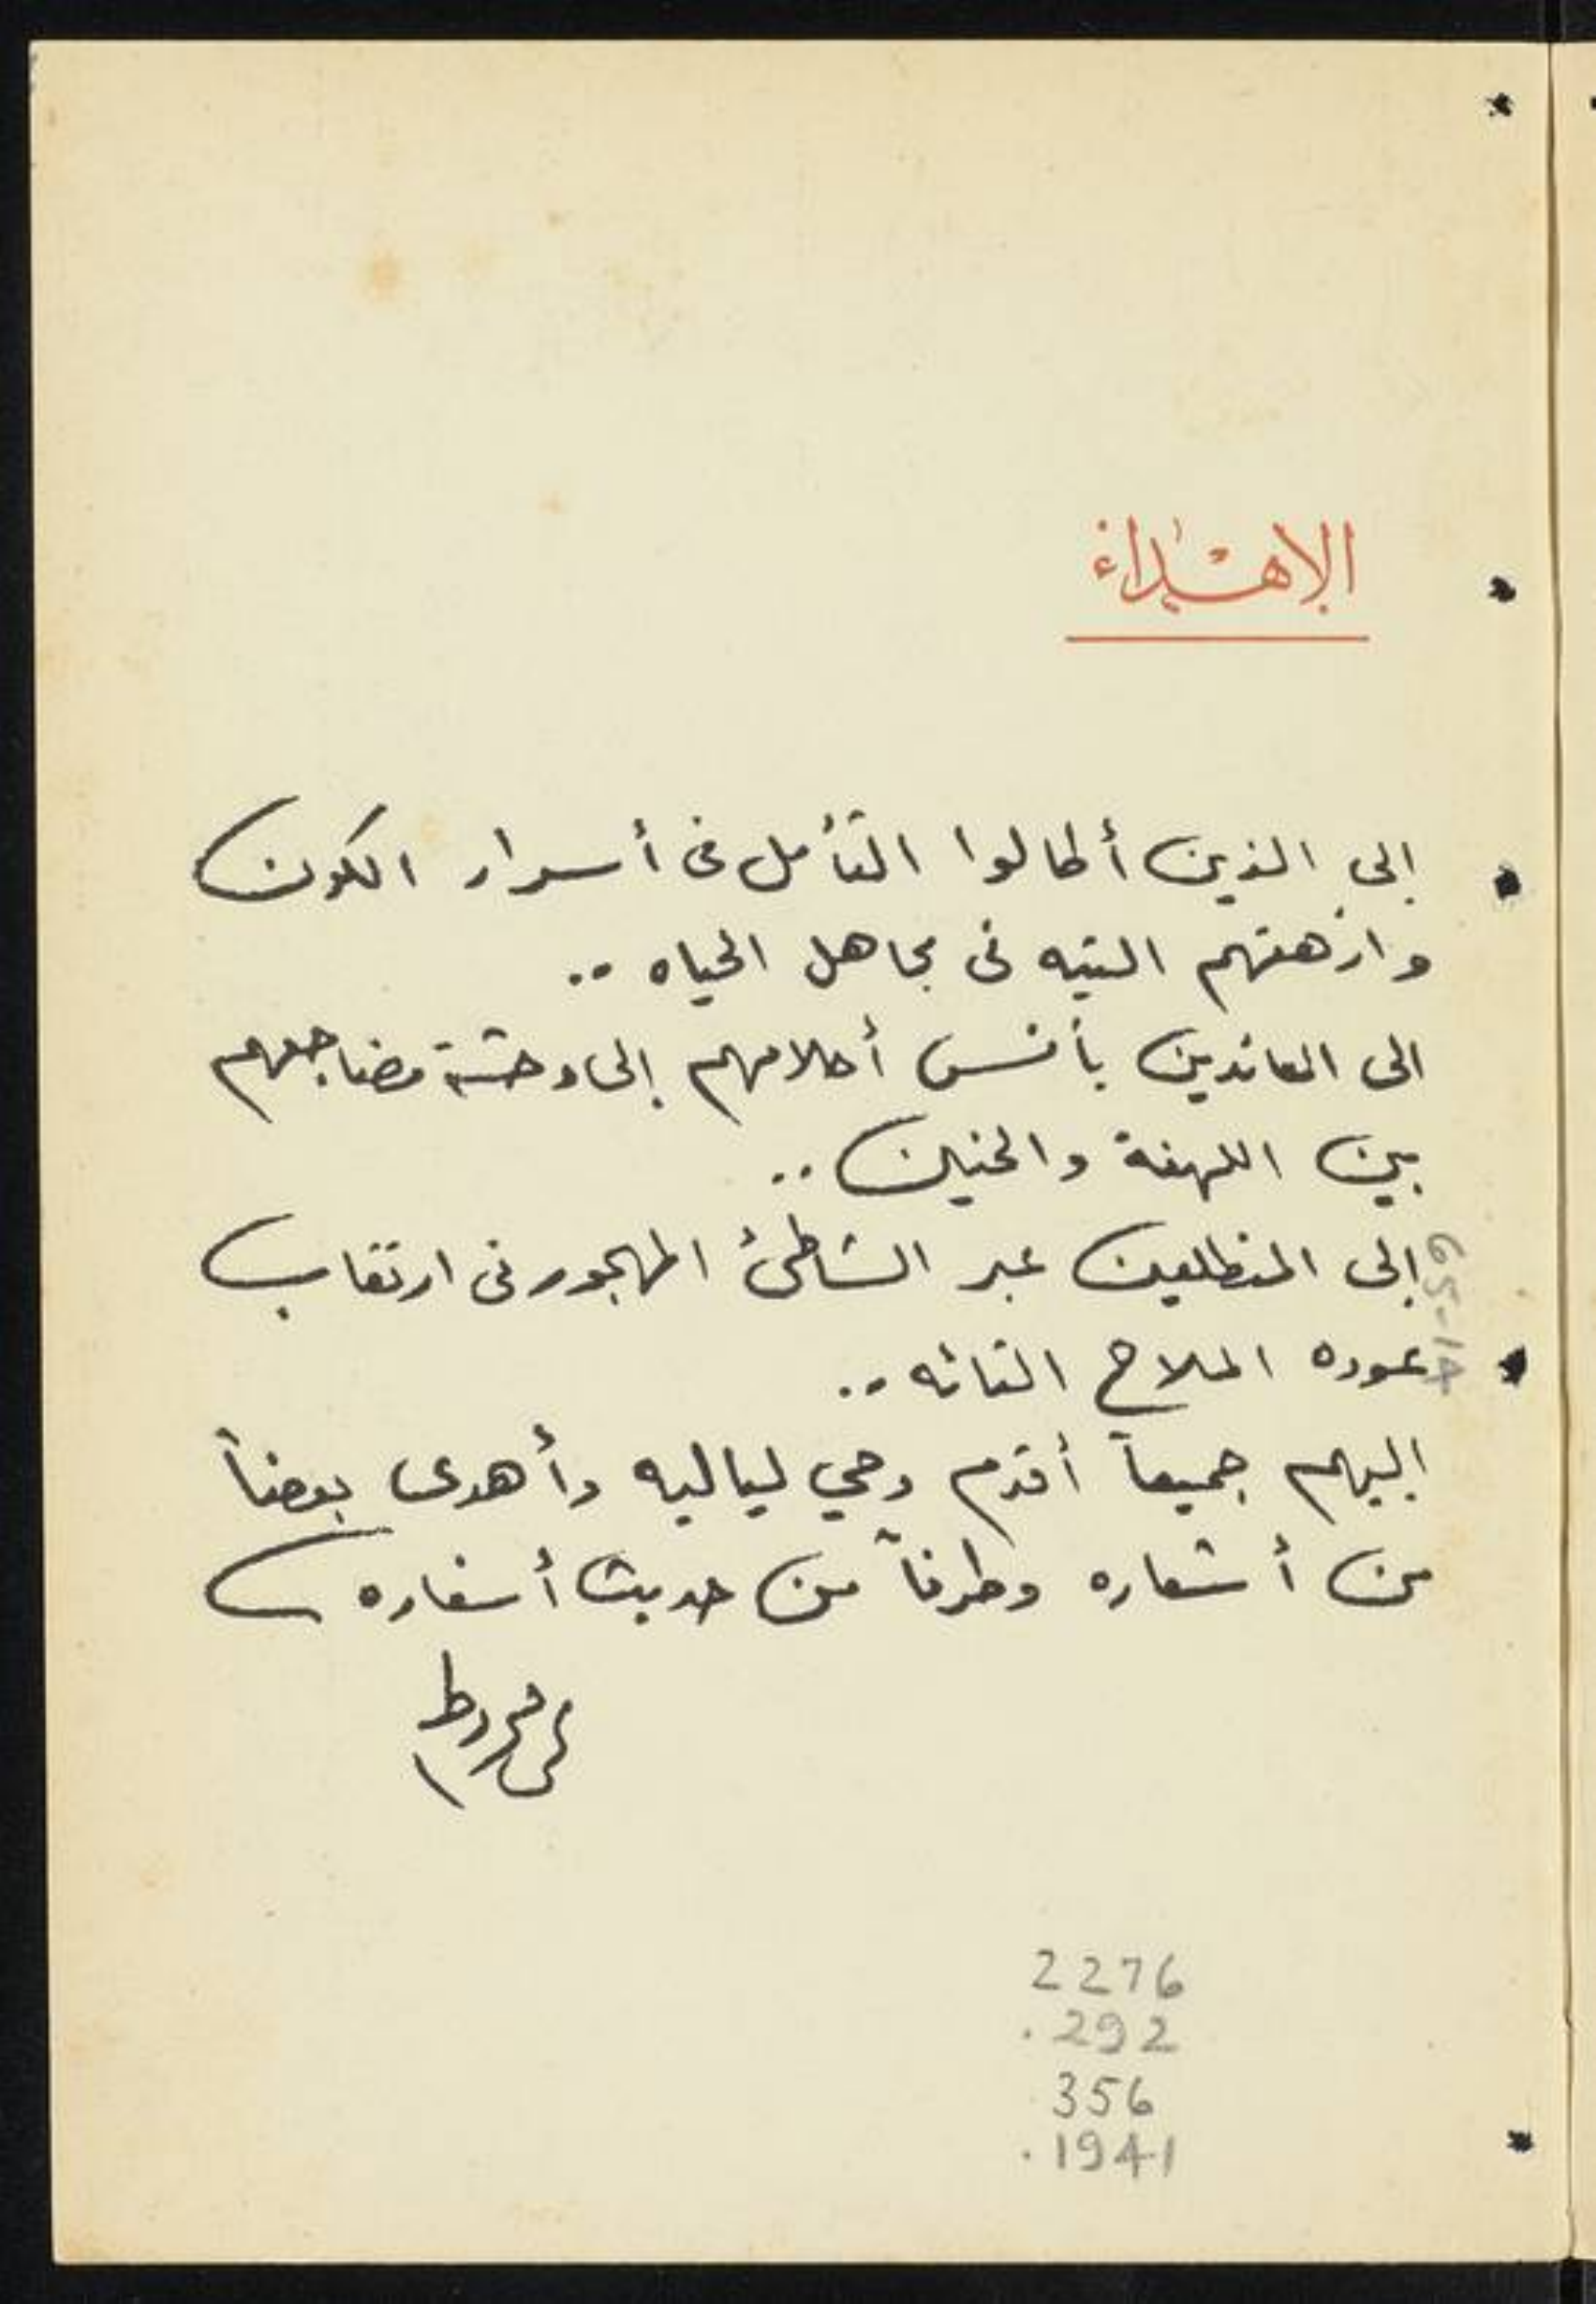 الإهداء
إلى الذين أطالوا التأمل فى أسرار الكون
وازهقهم التيه فى مجاهل الحياه ..
الى العائدين بأنس أحلامهم إلى وحشة مضاجعهم
بين اللهفة والحنين ..
إلى المتطلعين عبر الشاطئ المهجور فى ارتقاب
عوده الملاح التائه ..
إليهم جميعاً أقدم وحي لياليه وأهدى بعضاً
من أشعاره وطرفاً من حديث أسفاره
على محمود طه
65-14
2276
.292
356
.1941